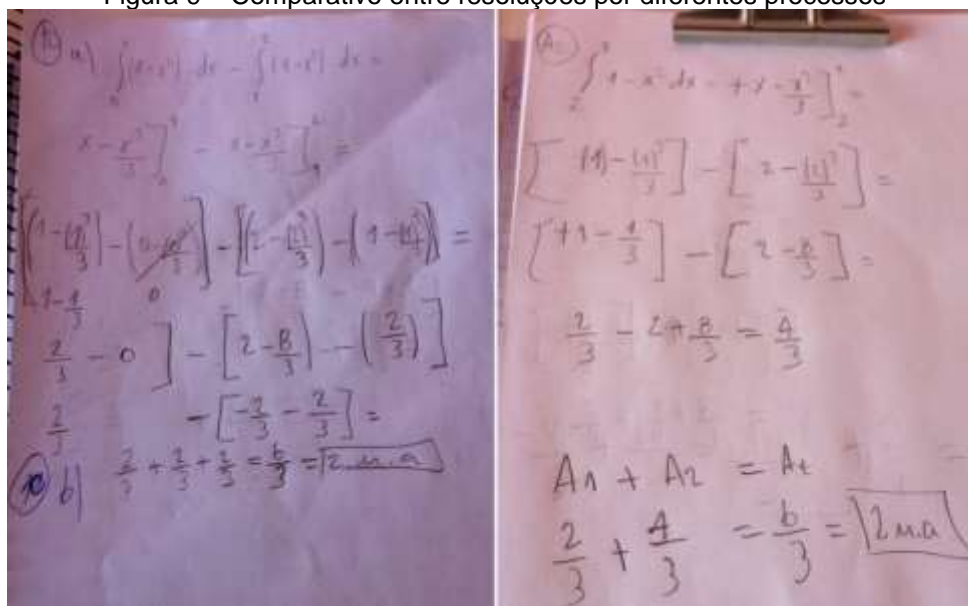 Figura 6 – Comparativo entre resoluções por diferentes processos
10 a) ∫(1-x²) dx - ∫(1-x²) dx =
x - x³/3] - x - x³/3] =
[(1 - (1)³/3) - (0 - (0)³/3)] - [(2 - (2)³/3) - (1 - (1)³/3)] =
1 - 1/3 0
2/3 - 0] - [2 - 8/3) - - (2/3)]
2/3 - [-2/3 - 2/3] =
10 b) 2/3 + 2/3 + 2/3 = 6/3 = 2 u.a
∫ 1 - x² dx = + x - x³/3] =
[(1) - (1)³/3] - [2 - (2)³/3] =
[+1 - 1/3] - [2 - 8/3] =
2/3 - 2 + 8/3 = 4/3
A1 + A2 = At
2/3 + 4/3 = 6/3 = 2 u.a